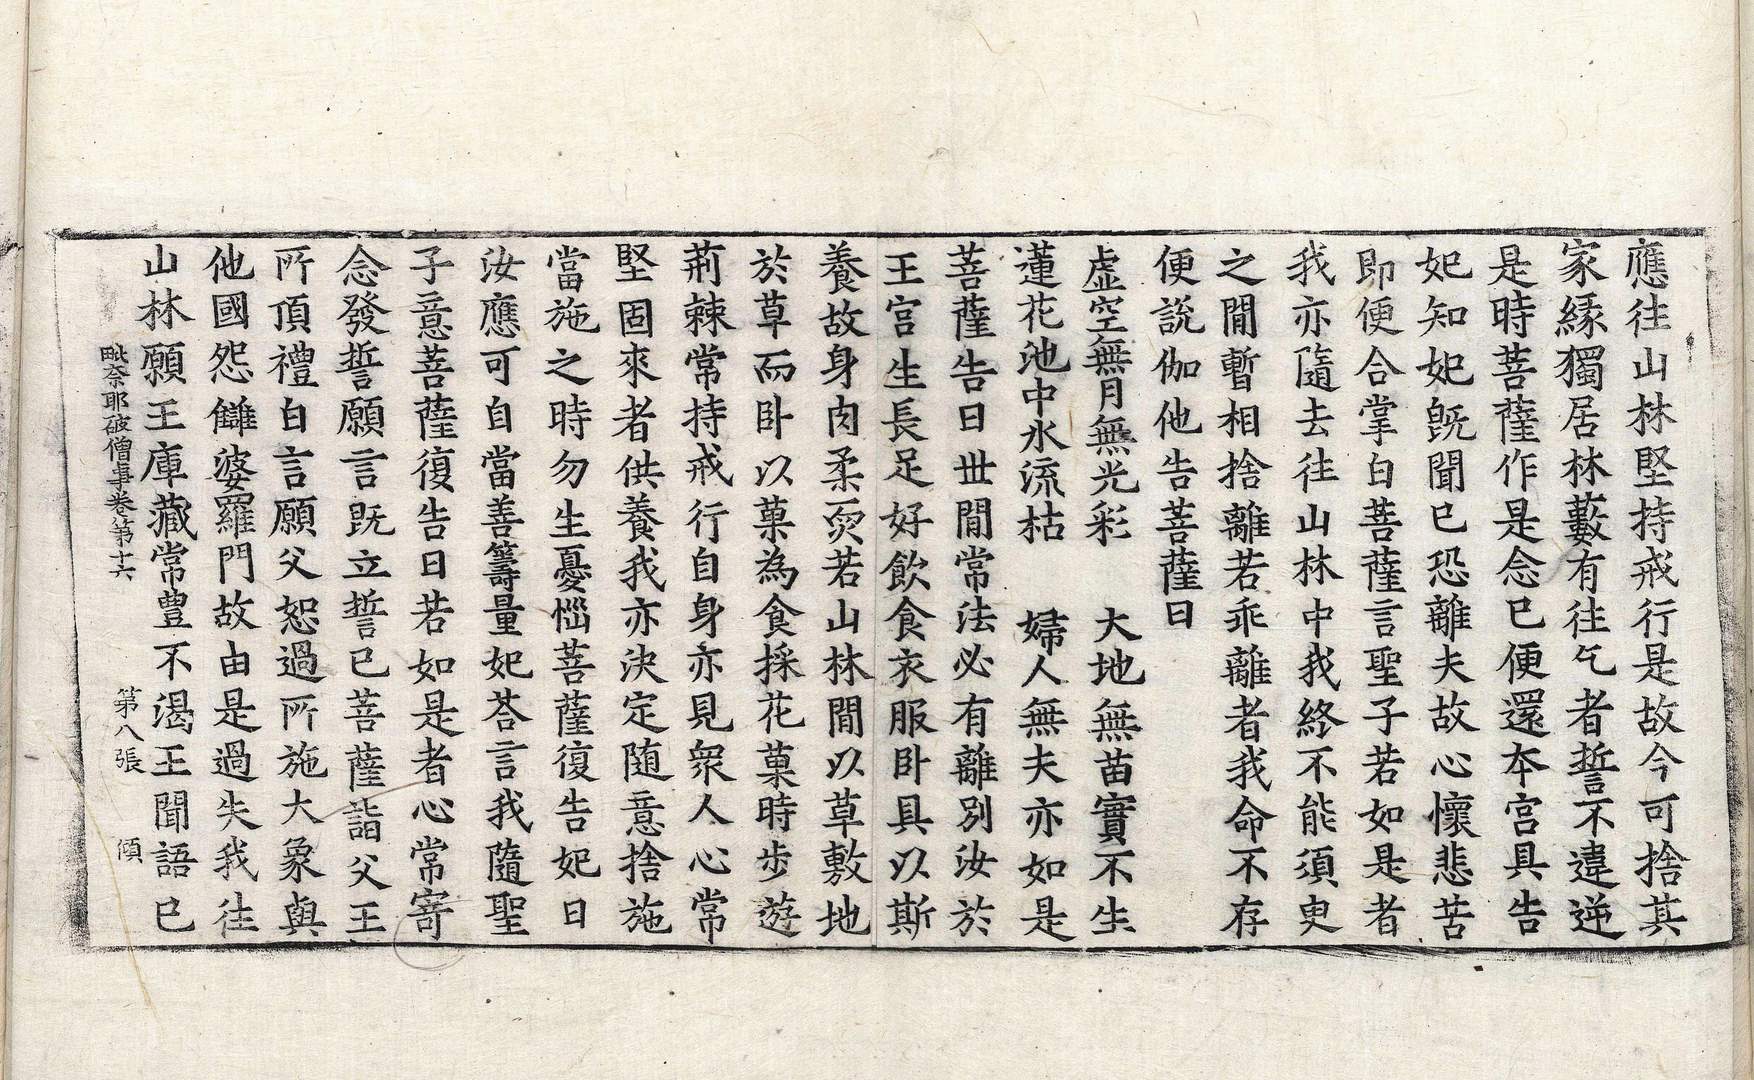 應往山林堅持戒行是故今可捨其
家緣獨居林藪有往乞者誓不違逆
是時菩薩作是念已便還本宮具告
妃知妃旣聞已恐離夫故心懷悲苦
即便合掌白菩薩言聖子若如是者
我亦隨去往山林中我終不能須臾
之間暫相捨離若乖離者我命不存
便說伽他告菩薩曰
虛空無月無光彩　大地無苗實不生
蓮花池中水流枯　婦人無夫亦如是
菩薩告曰世間常法必有離別汝於
王宮生長足好飲食衣服卧具以斯
養故身肉柔耎若山林間以草敷地
於草而卧以菓為食採花菓時步遊
荊棘常持戒行自身亦見衆人心常
堅固來者供養我亦決定隨意捨施
當施之時勿生憂惱菩薩復告妃曰
汝應可自當善籌量妃荅言我隨聖
子意菩薩復告曰若如是者心常寄
念發誓願言旣立誓已菩薩詣父王
所頂禮白言願父恕過所施大象與
他國怨讎婆羅門故由是過失我往
山林願王庫藏常豊不渴王聞語已
毗奈耶破僧事卷第十六　第八張　傾